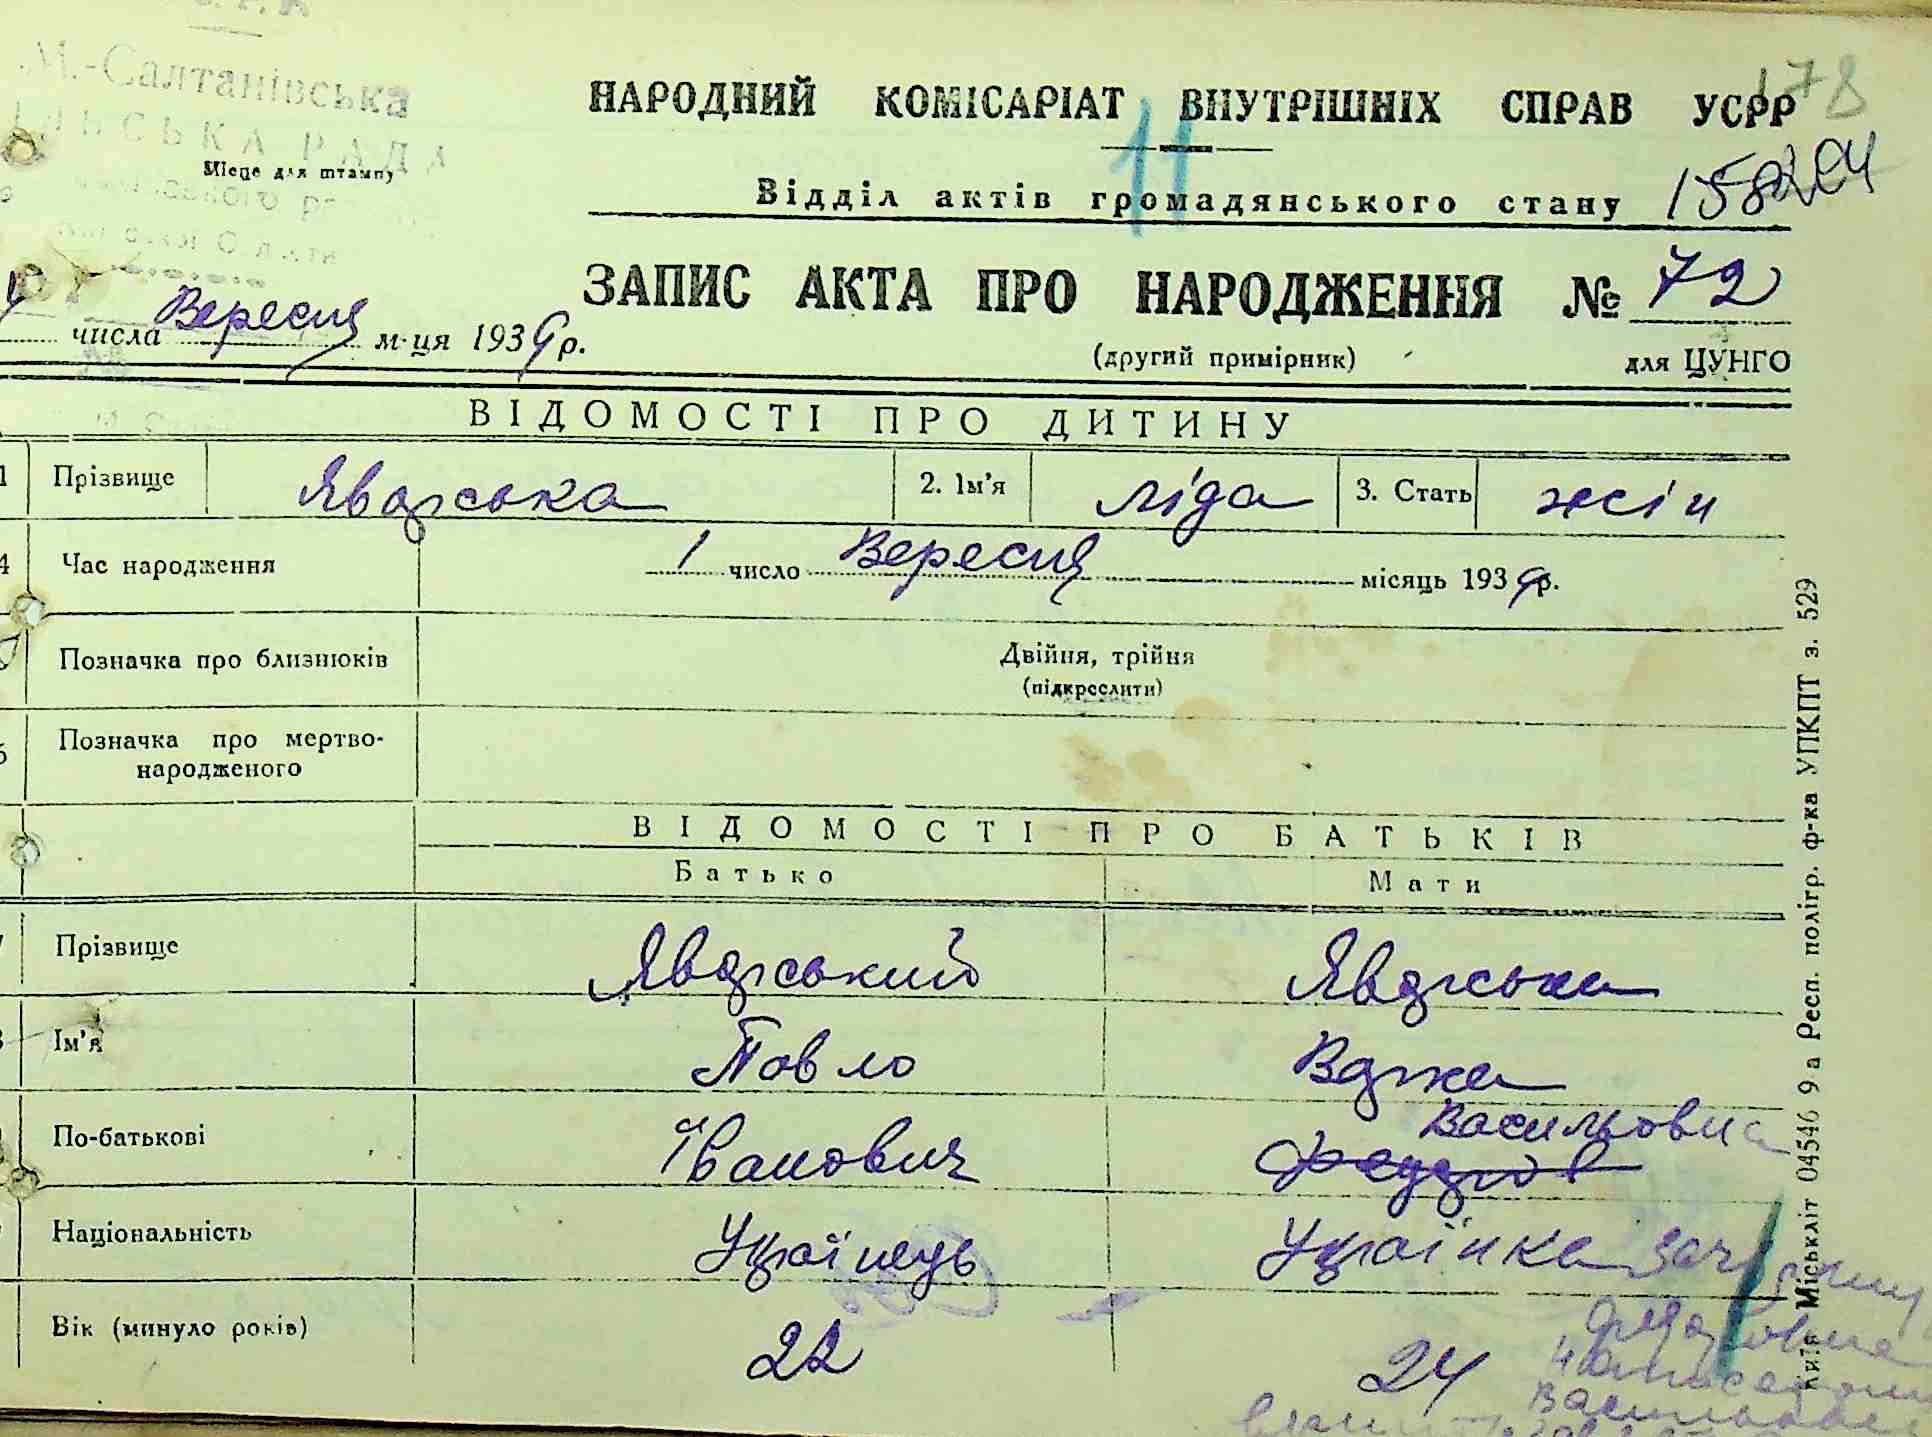 М.-Салтанівська
СЬКА РАДА
Місце для штампу
178
НАРОДНИЙ КОМІСАРІАТ ВНУТРІШНІХ СПРАВ УСРР
11
Відділ актів громадянського стану 158
ЗАПИС АКТА ПРО НАРОДЖЕННЯ № 72
числа Вересня м-ця 1939 р.
(другий примірник) для ЦУНГО
ВІДОМОСТІ ПРО ДИТИНУ
1 Прізвище Яворська 2. Ім'я Ліда 3. Стать жін
4 Час народження 1 число Вересня місяць 1939 р.
Позначка про близнюків Двійня, трійня
(підкреслити)
6 Позначка про мертво-
народженого
ВІДОМОСТІ ПРО БАТЬКІВ
Батько Мати
Прізвище Яворський Яворська
Ім'я Павло
Васильовна
По-батькові Іванович
Національність Українець Українка
Вік (минуло років) 22 24
Київ Міськліт 04546 9 а Респ. полігр. ф-ка УПКПТ з. 529